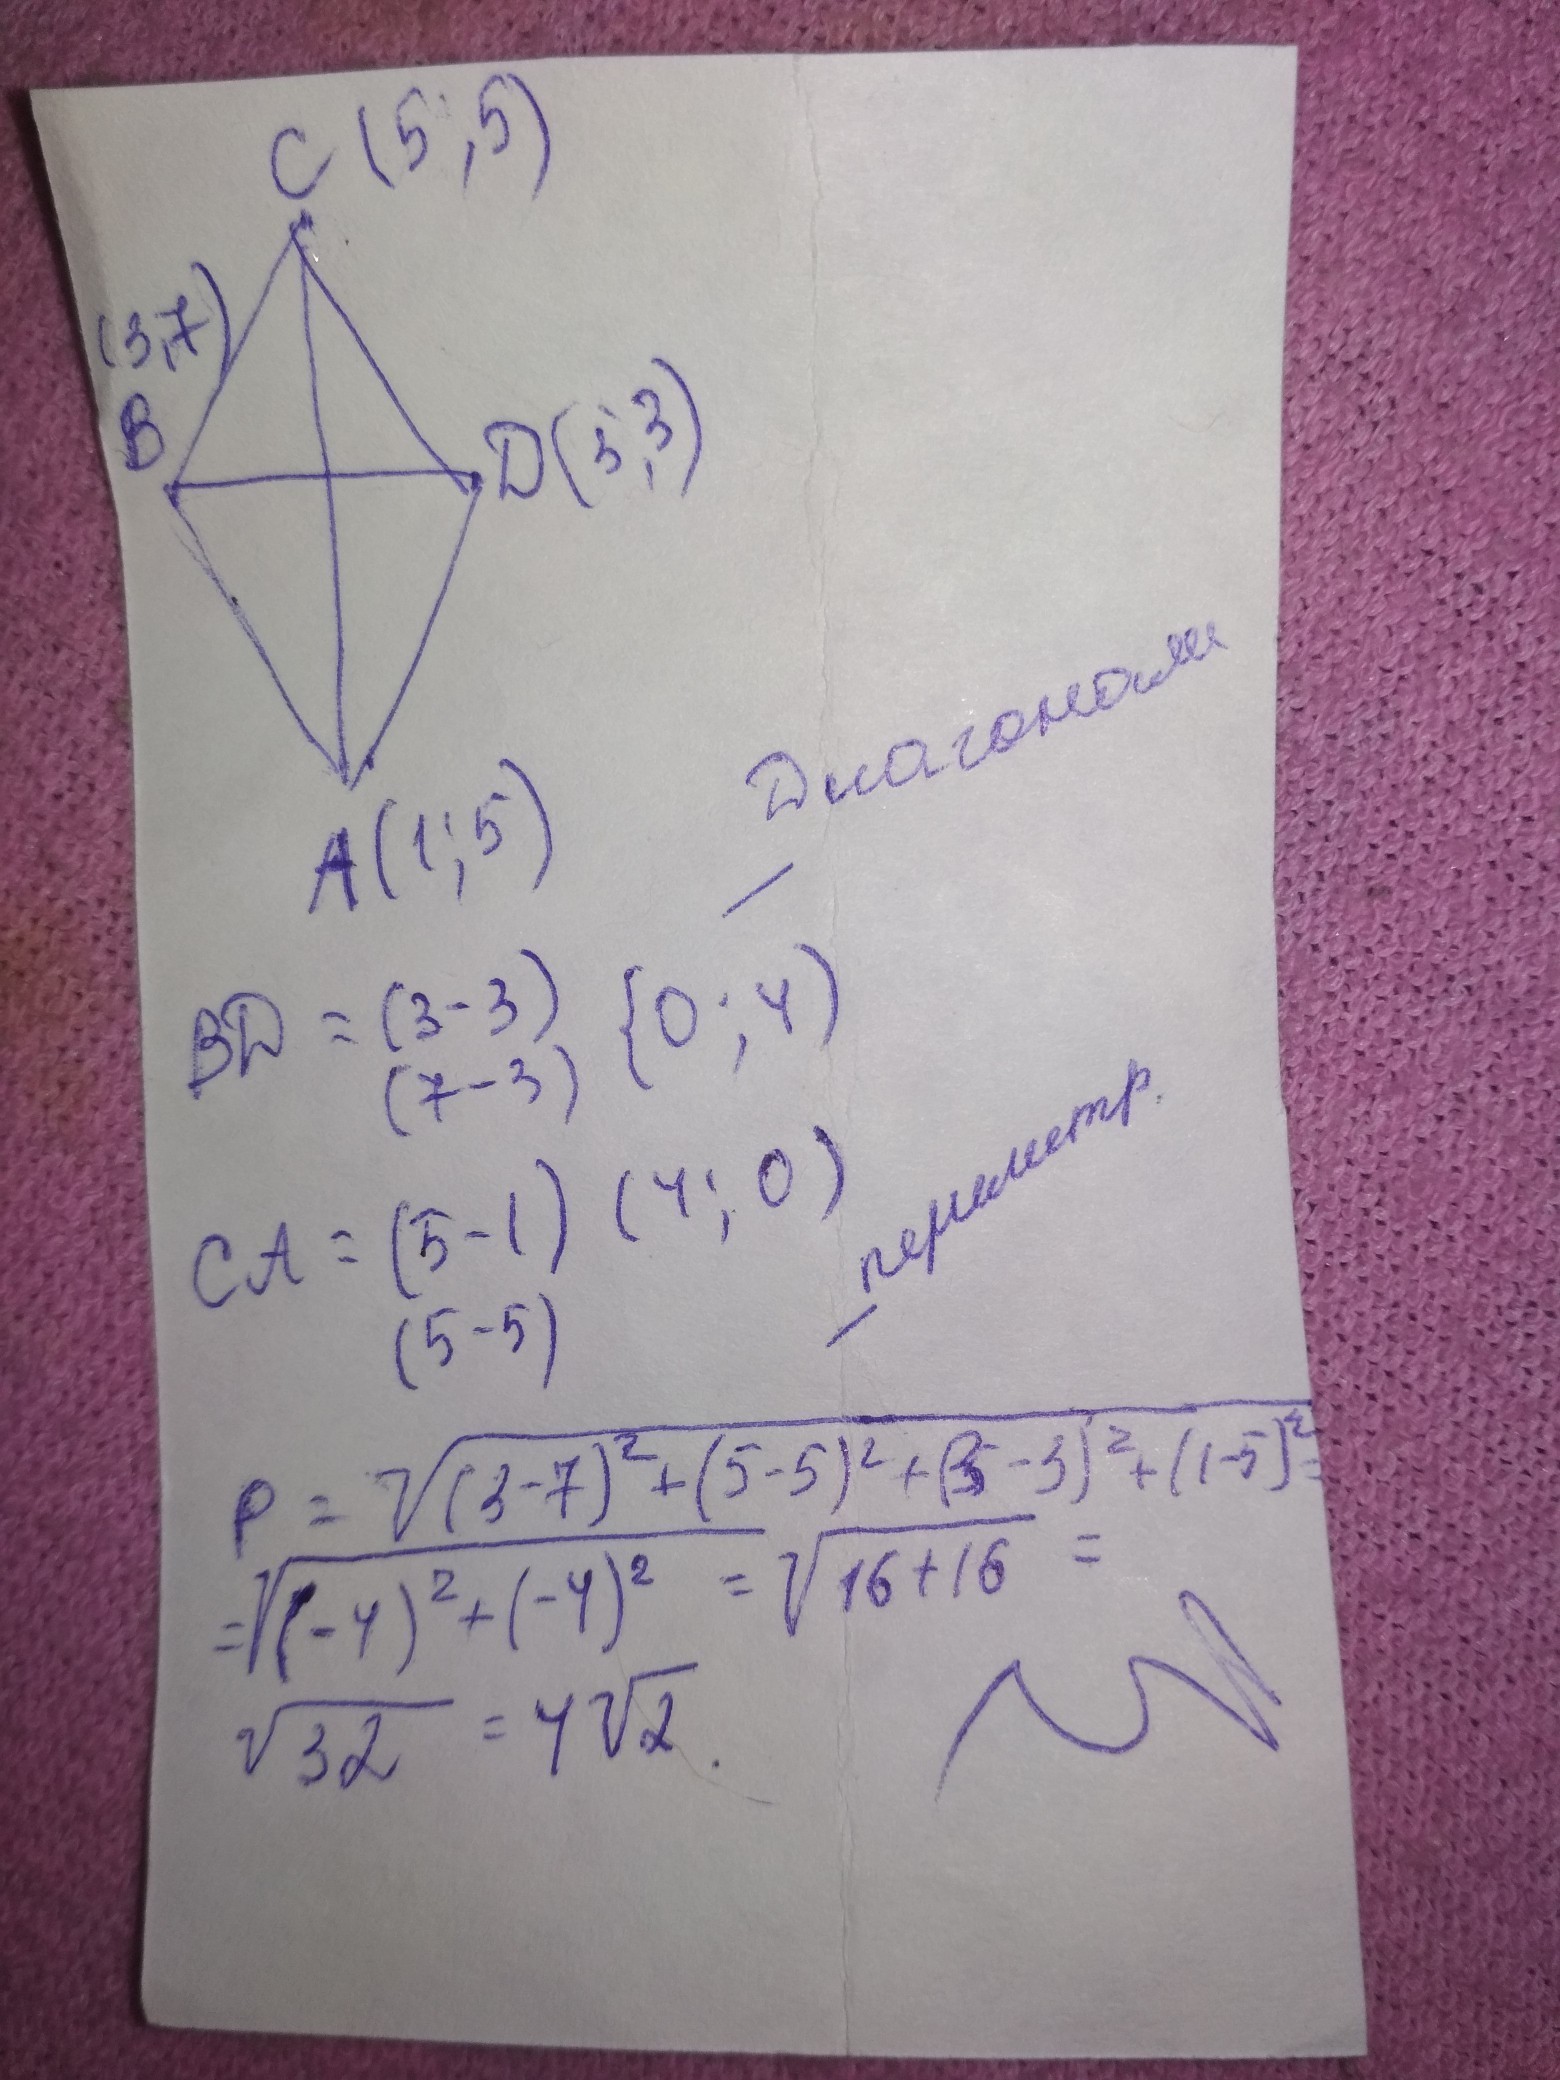 C (5;5)
(3,7)
B
D(3;3)
A(1;5)
Диагонали
BD = (3-3) {0;4)
(7-3)
CA = (5-1) (4;0)
(5-5)
периметр.
P = √(3-7)²+(5-5)²+(3-3)²+(1-5)² =
= √(-4)²+(-4)² = √16+16 =
√32 = 4√2.